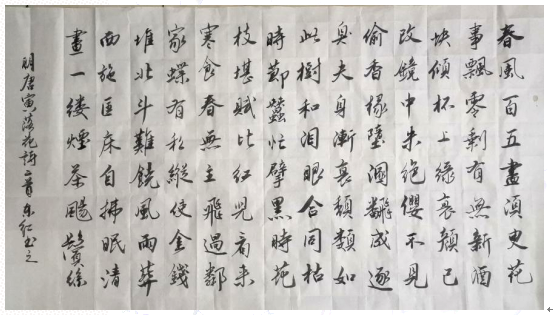 春風百五盡須臾花
事飄零剩有無新酒
快傾杯上綠衰顏已
改鏡中朱絕纓不見
偷香掾墮溷翻成逐
臭夫身漸衰頹類如
此樹和淚眼合同枯
時節蠶忙擘黑時花
枝堪賦比紅兒看來
寒食春無主飛過鄰
家蝶有私縱使金錢
堆北斗難饒風雨葬
西施匡床自拂眠清
晝一縷煙茶颺鬢絲
明唐寅落花詩二首東紅書之